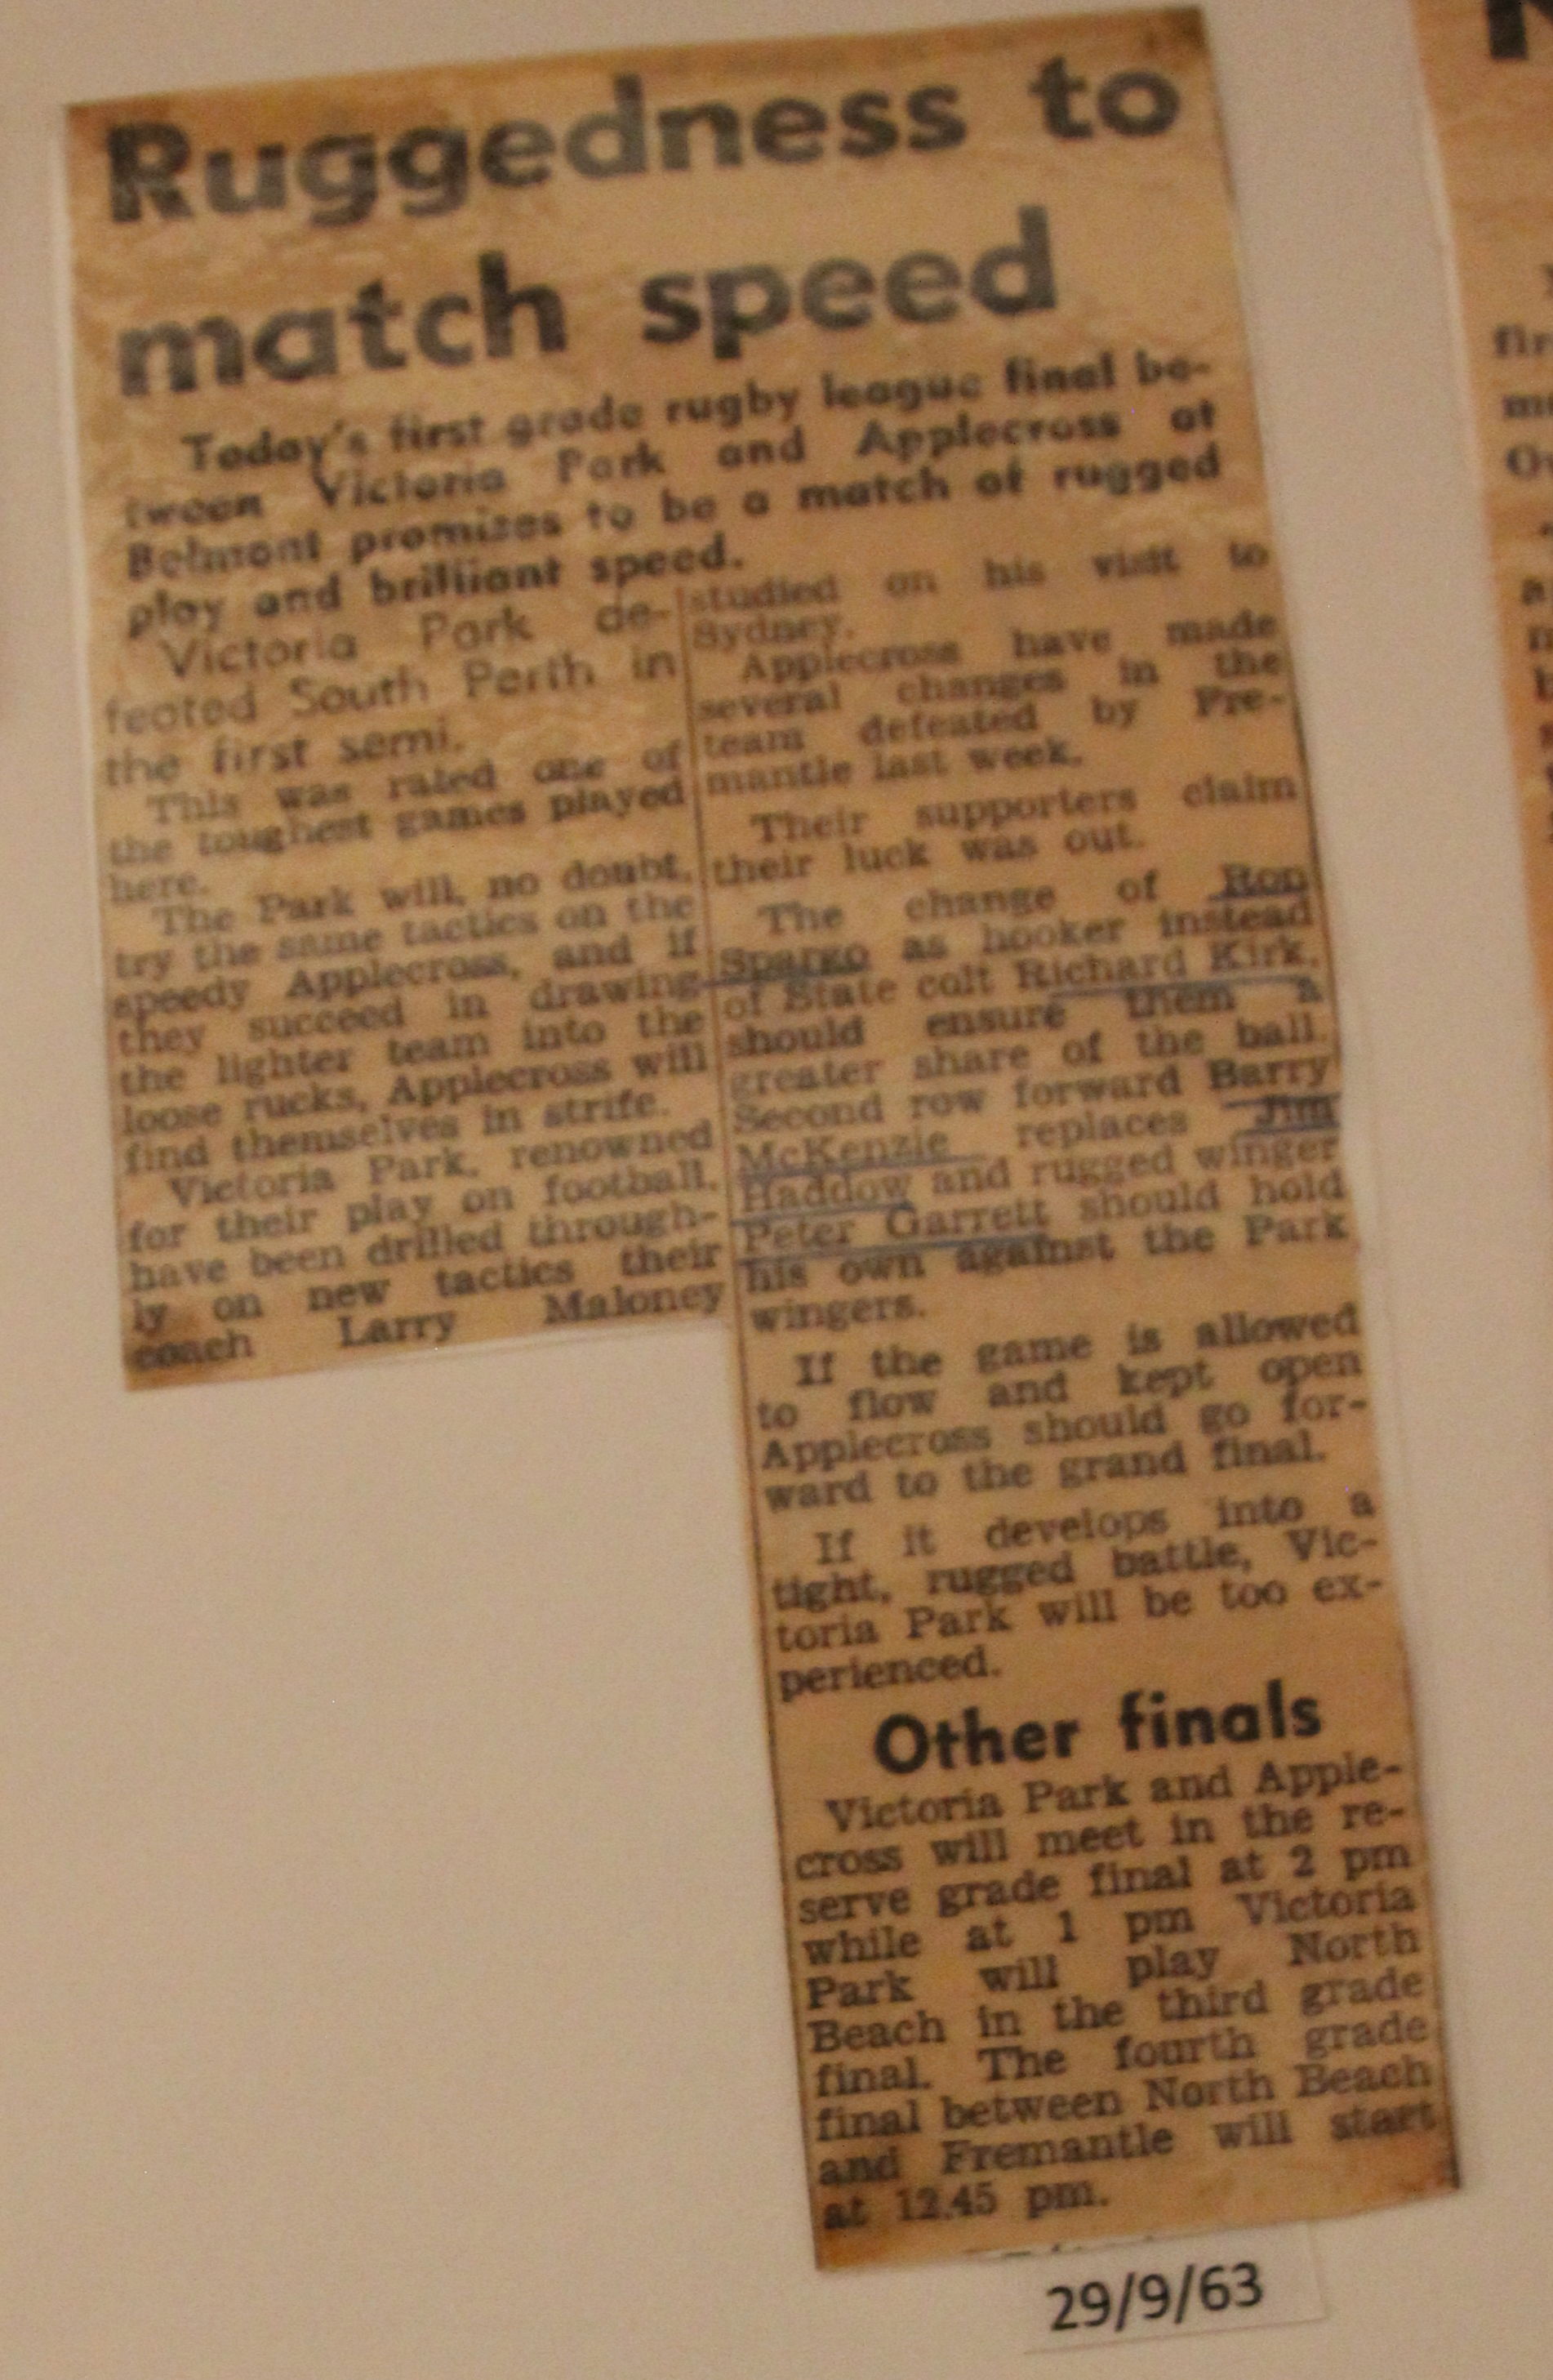 Ruggedness to
match speed
Today's first grade rugby league final be-
tween Victoria Park and Applecross at
Belmont promises to be a match of rugged
play and brilliant speed.
Victoria Park de-
feated South Perth in
the first semi.
This was rated one of
the toughest games played
here.
The Park will, no doubt,
try the same tactics on the
speedy Applecross, and if
they succeed in drawing
the lighter team into the
loose rucks, Applecross will
find themselves in strife.
Victoria Park, renowned
for their play on football,
have been drilled through-
ly on new tactics their
coach Larry Maloney
studied on his visit to
Sydney.
Applecross have made
several changes in the
team defeated by Fre-
mantle last week.
Their supporters claim
their luck was out.
The change of Ron
Spargo as hooker instead
of State colt Richard Kirk,
should ensure them a
greater share of the ball.
Second row forward Barry
McKenzie replaces Jim
Haddow and rugged winger
Peter Garrett should hold
his own against the Park
wingers.
If the game is allowed
to flow and kept open
Applecross should go for-
ward to the grand final.
If it develops into a
tight, rugged battle, Vic-
toria Park will be too ex-
perienced.
Other finals
Victoria Park and Apple-
cross will meet in the re-
serve grade final at 2 pm
while at 1 pm Victoria
Park will play North
Beach in the third grade
final. The fourth grade
final between North Beach
and Fremantle will start
at 12.45 pm.
29/9/63